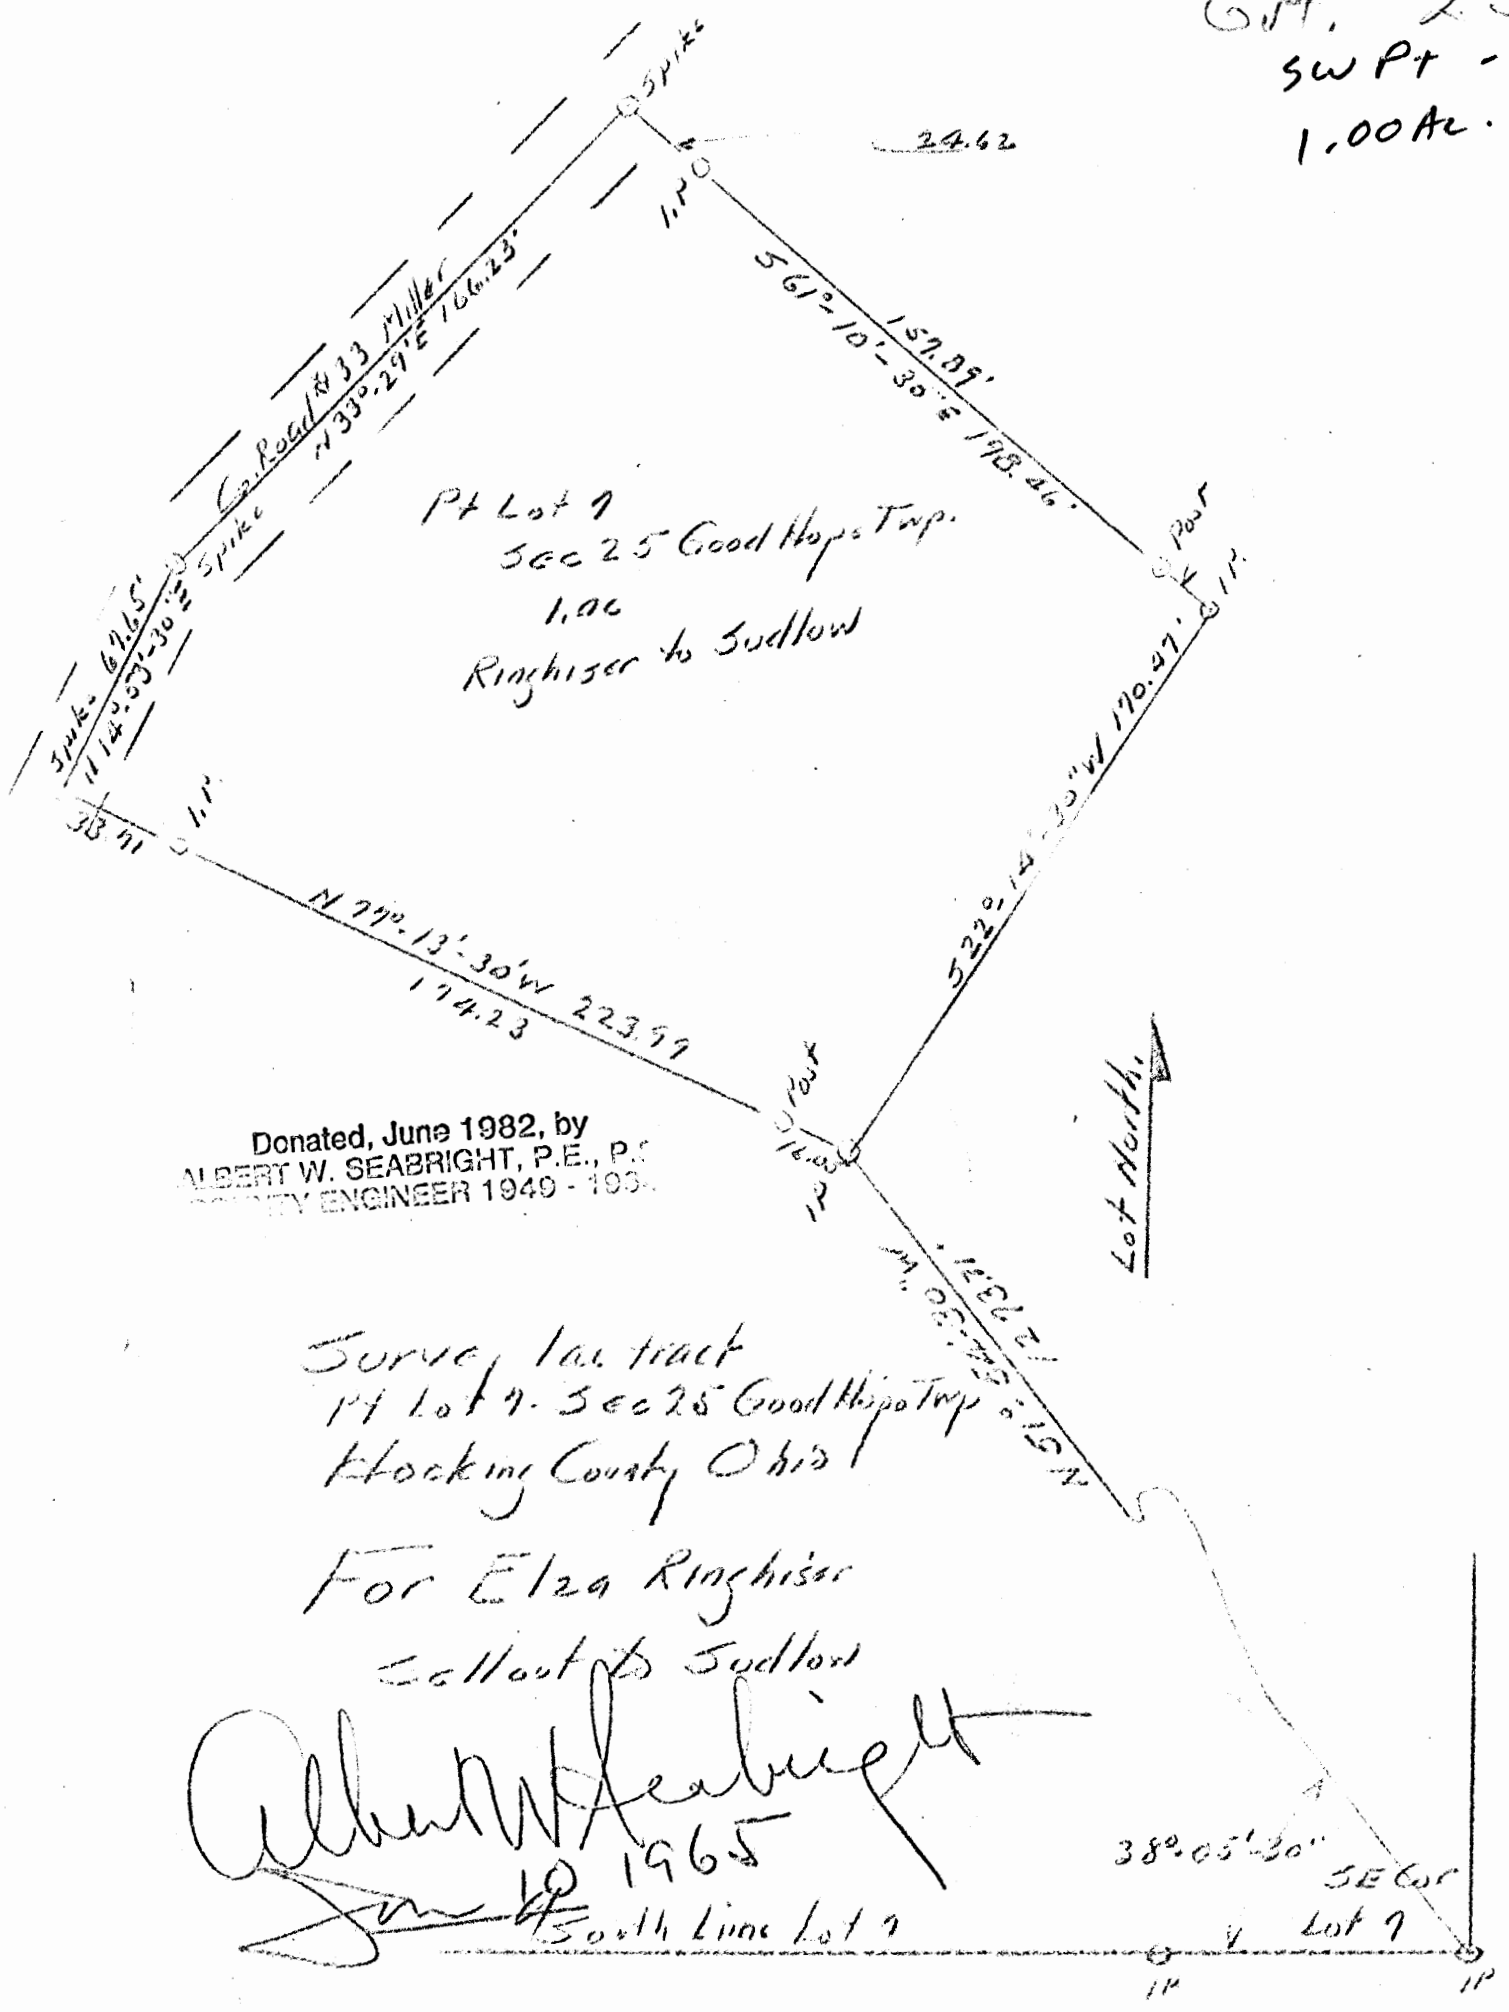 SW Pt -
1.00 Ac.
Spike
24.62
I.P
Co. Road # 33 Miller
N 33°-29'E 166.23'
157.89'
S 61°-10'-30"E 198.46'
Post
I.P.
Pt Lot 7
Sec 25 Good Hope Twp.
1.ac
Ringhiser to Sudlow
Spike
67.65'
Spike
N 14°-53'-30"E
38.71
I.P.
S 22°-14'-30"W 170.47'
N 77°-13'-30'W 223.97
174.23
Post
IP
Lot North.
Donated, June 1982, by
ALBERT W. SEABRIGHT, P.E., P.S
COUNTY ENGINEER 1949 -
1273.71'
Survey 1ac tract
Pt Lot 7. Sec 25 Good Hope Twp
Hocking County Ohio
For Elza Ringhiser
Sellout to Sudlow
Albert W Seabright
10 1965
38°-05'-30"
SE Cor
Lot 7
South Line Lot 7
IP
IP